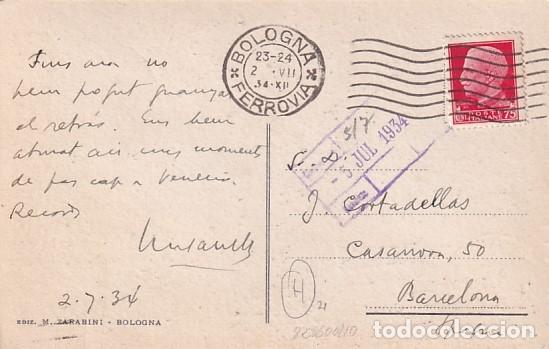 Fins ara no
hem pogut guanyar
el retràs. Ens hem
aturat aquí uns moments
de pas cap a Venecia
Records
2.7.34
EDIZ. M. ZARABINI - BOLOGNA
BOLOGNA
23-24
2 VII
34·XII
FERROVIA
POSTE
ITALIANE
75
5/7
-5 JUL 1934
S. D.
J. Cortadellas
Casanova, 50
Barcelona
H
21
todocoleccion